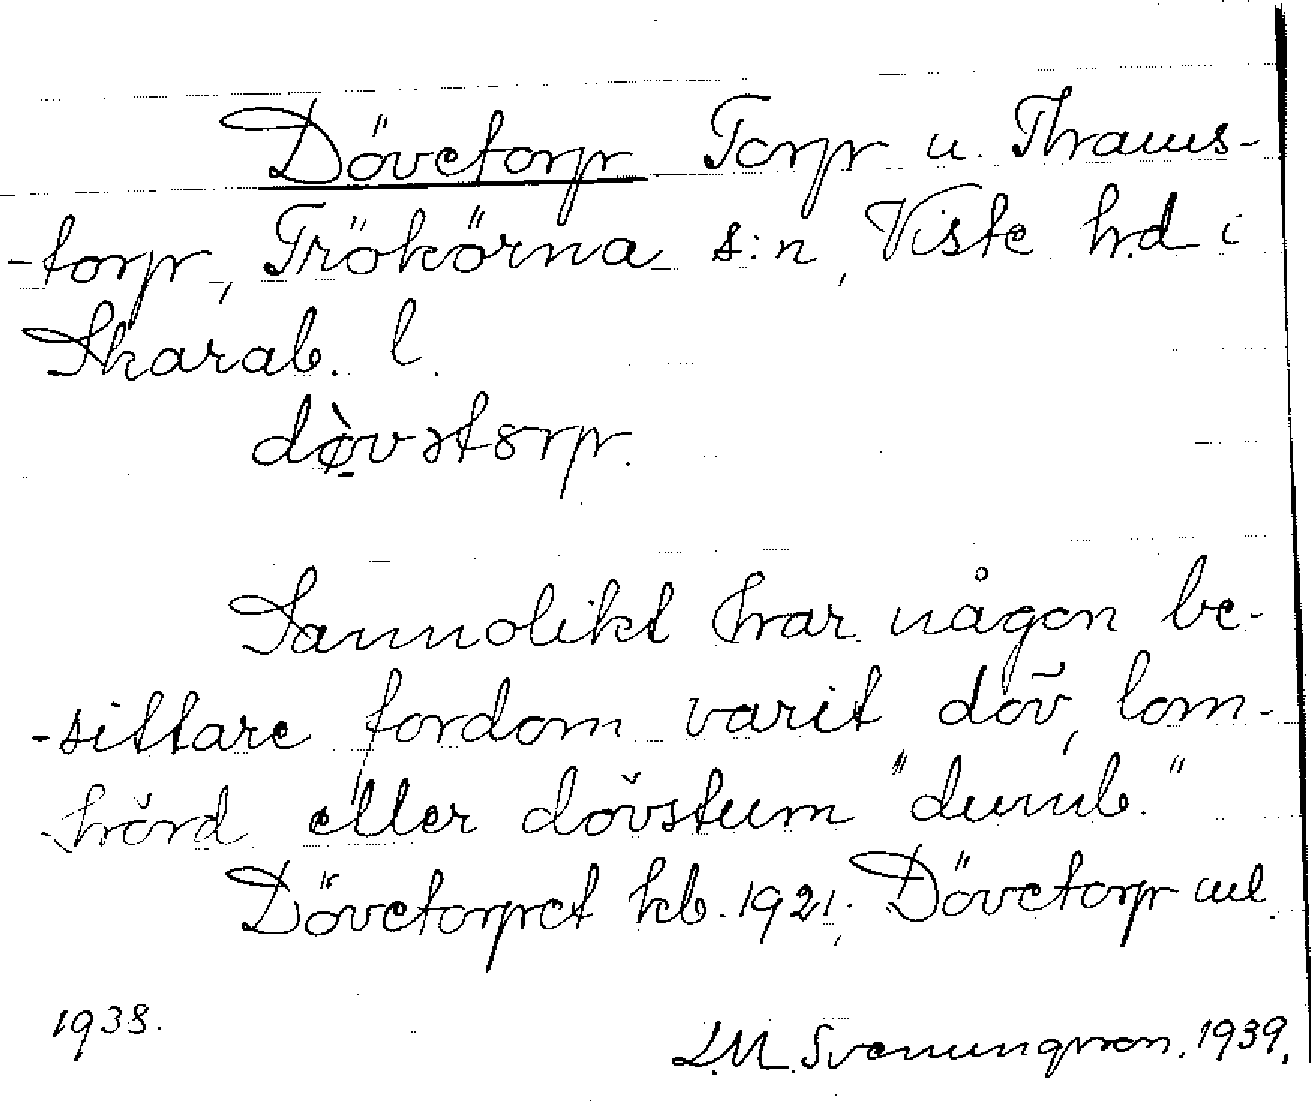 Dövetorp Torp u. Thraws-
-torp, Trökörna s:n, Viste h.d i
Skarab. l.
dø̀vətɵrp.
Sannolikt har någon be-
-sittare fordom varit döv, lom-
-hörd eller dövstum "dumb."
Dövetorpet kb. 1921; Dövetorp ml.
1938.
L.M. Svenungsson. 1939.